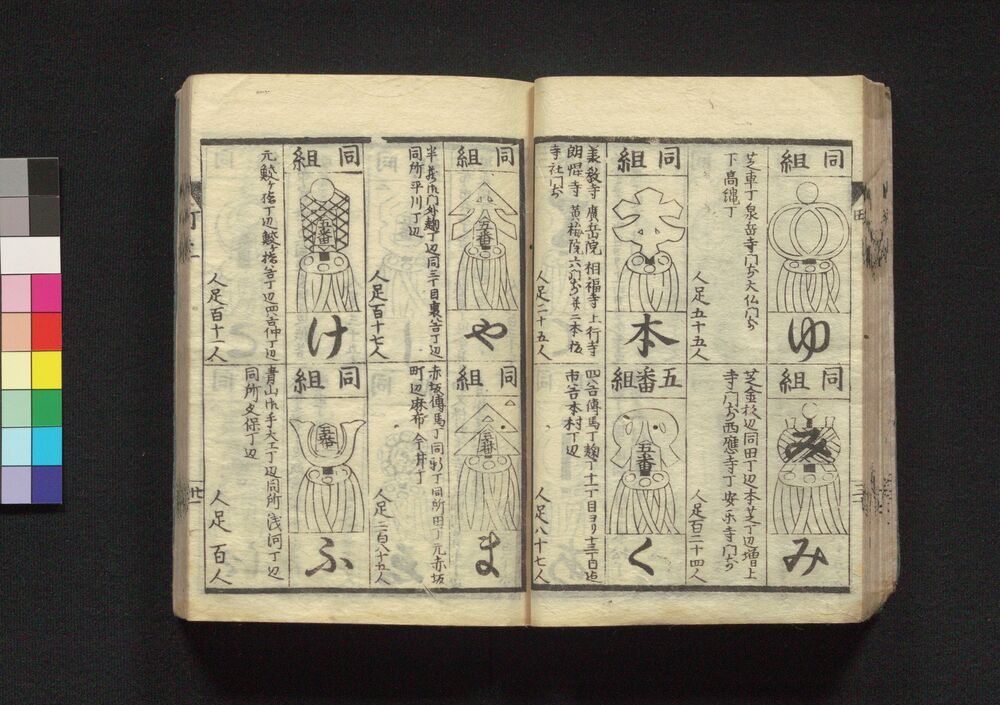 同組
ゆ
芝車丁泉岳寺門前大仏門前
下高縄丁
人足五十五人
同組
み
み
芝金杉辺同田丁辺本芝丁辺増上
寺門前西應寺丁安乐寺門前
人足百二十四人
同組
本
義教寺 廣岳院 相福寺上行寺
朗惺寺 黄梅院六門前并二本榎
寺社門前
人足二十五人
五番組
五番
く
四谷傳馬丁麹丁十一丁目ヨリ十三丁目迠
市谷本村丁辺
人足八十七人
同組
五番
や
半蔵御門外麹丁辺同三丁目裏谷丁辺
同所平川丁辺
人足百十七人
同組
五番
ま
赤坂傳馬丁同新丁同所田丁元赤坂
町辺麻布今井丁
人足二百八十五人
同組
五番
け
元鮫ヶ橋丁辺鮫ヶ橋谷丁辺四谷仲丁辺
人足百十一人
同組
五番
ふ
青山御手大工丁辺同所浅河丁辺
同所久保丁辺
人足百人